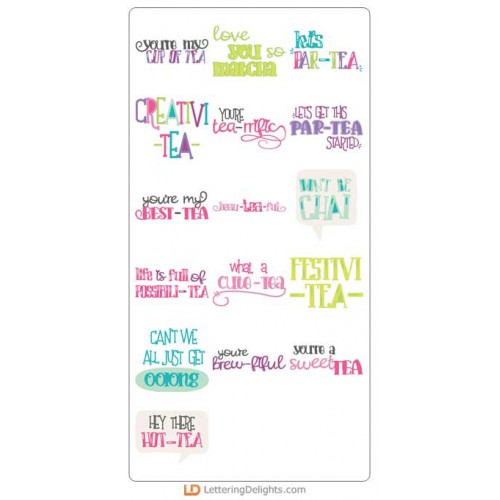 you're my
CUP OF TEA
love
you so
matcha
let's
PAR-TEA
CREATIVI
-TEA-
YOU'RE
tea-rrific
LET'S GET THIS
PAR-TEA
STARTED
you're my
BEST-TEA
beau-tea-ful
DON'T BE
CHAI
life is full of
POSSIBILI-TEA
what a
cute-tea
FESTIVI
-TEA-
CAN'T WE
ALL JUST GET
oolong
you're
brew-tiful
you're a
sweet TEA
HEY THERE
HOT-TEA
LD LetteringDelights.com